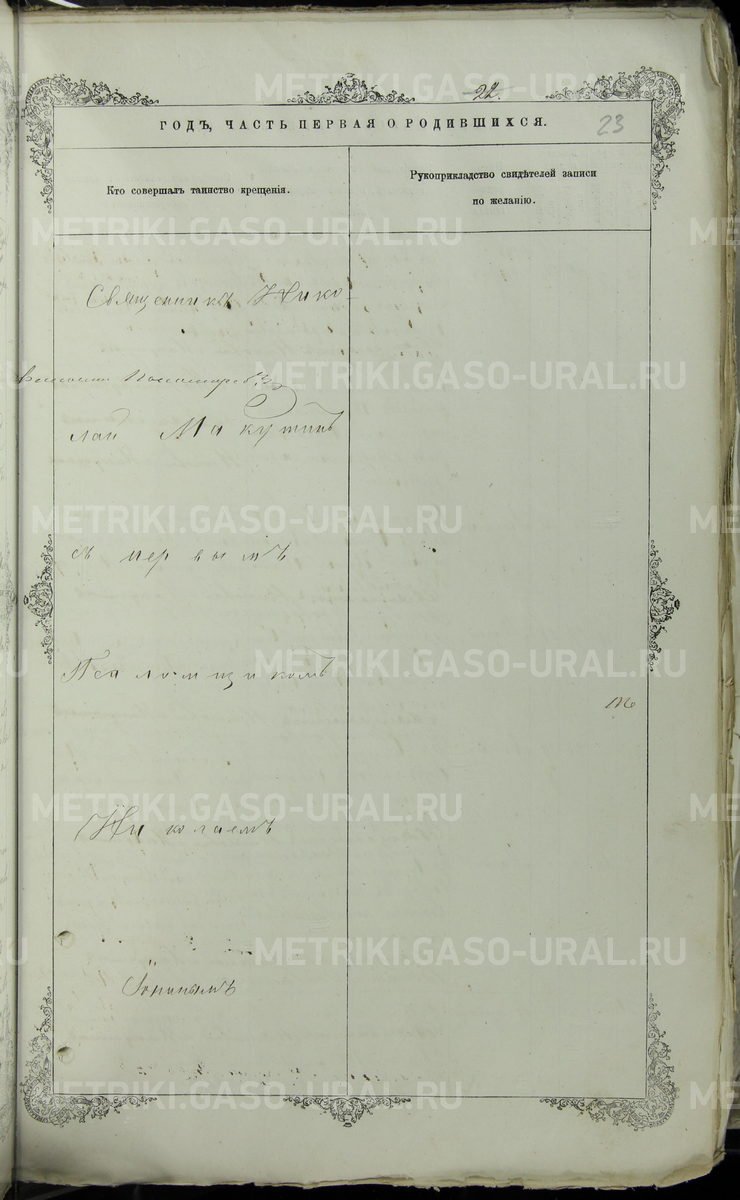 22.
23
ГОДЪ, ЧАСТЬ ПЕРВАЯ О РОДИВШИХСЯ.
Кто совершалъ таинство крещенія.
Рукоприкладство свидѣтелей записи
по желанію.
Священникъ Нико-
лай Микутинъ
съ первымъ
Псаломщикомъ
Николаемъ
Іонинымъ
METRIKI.GASO-URAL.RU